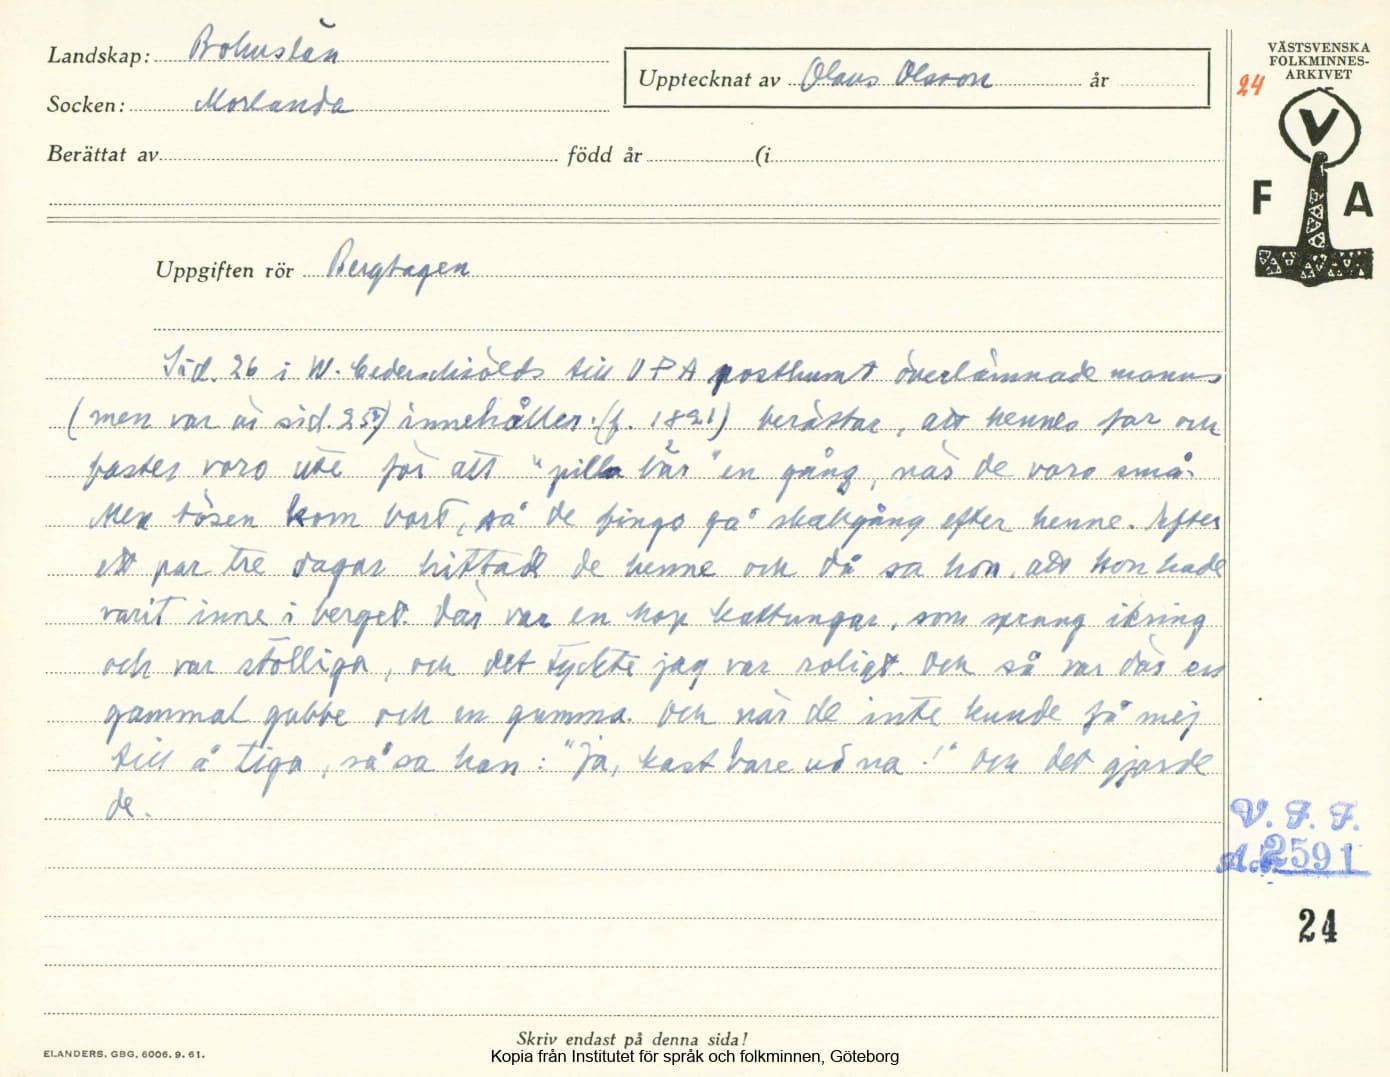 Landskap: Bohuslän
Socken: Morlanda
Upptecknat av Olaus Olsson år
Berättat av född år (i
VÄSTSVENSKA
FOLKMINNES-
ARKIVET
24
V
F A
Uppgiften rör Bergtagen
Sid. 26 i W. Cederschiölds till VFA posthumt överlämnade manus
(men var är sid. 25?) innehåller. (f. 1821) berättar, att hennes far och
faster voro ute för att "pilla bär" en gång, när de voro små.
Men tösen kom bort, så de fingo gå skallgång efter henne. Efter
ett par tre dagar hittade de henne och då sa hon, att hon hade
varit inne i berget. Där var en hop kattungar, som sprang ikring
och var stolliga, och det tyckte jag var roligt. Och så var där en
gammal gubbe och en gumma. Och när de inte kunde få mej
till å tiga, så sa han: "Ja, kast bare ud na!" Och det gjorde
de.
V. F. F.
2591
24
Skriv endast på denna sida!
ELANDERS, GBG, 6006. 9. 61.
Kopia från Institutet för språk och folkminnen, Göteborg